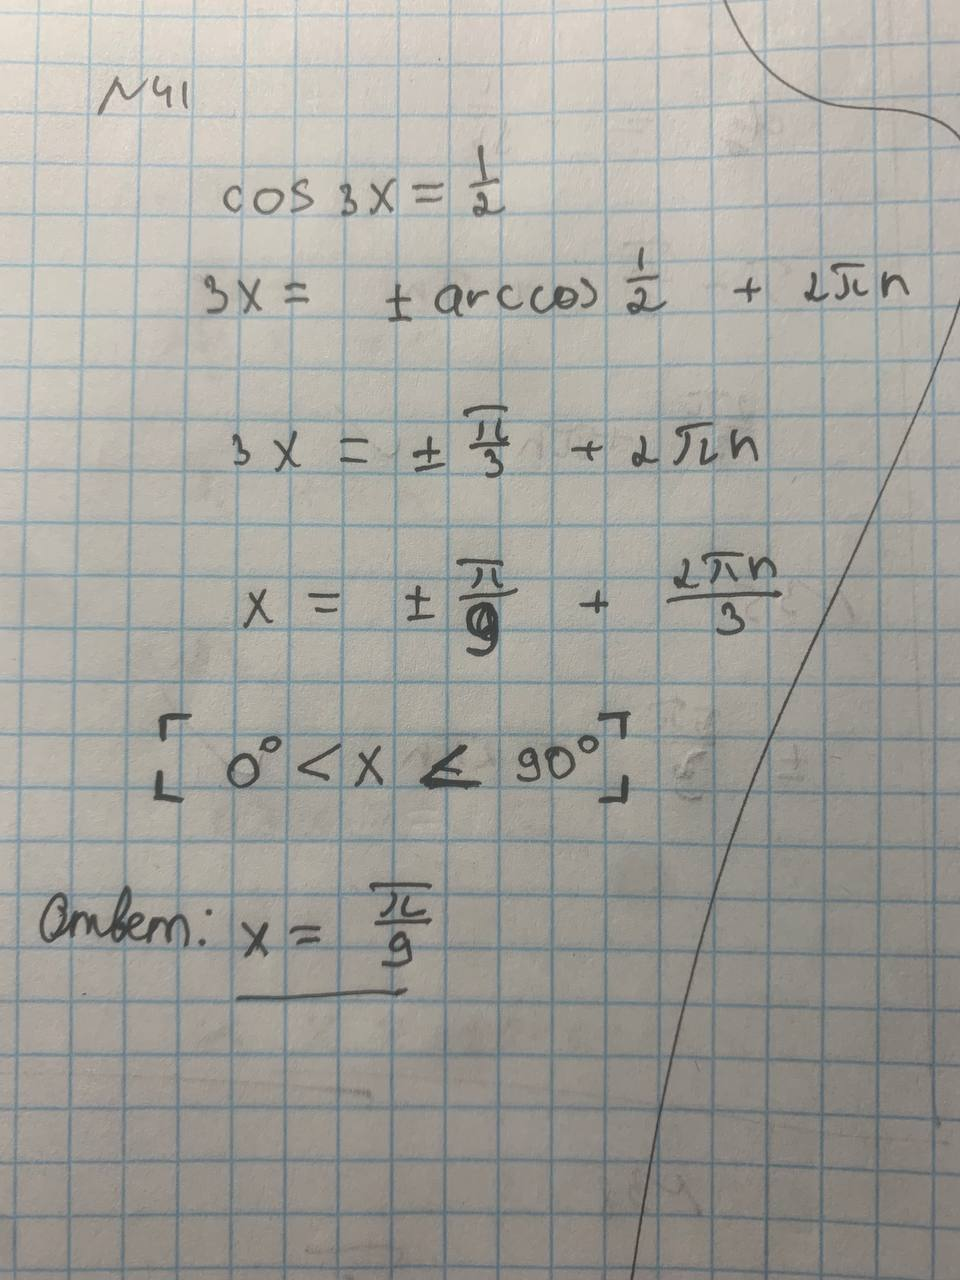 №41
cos 3x = 1/2
3x = ± arccos 1/2 + 2πn
3x = ± π/3 + 2πn
x = ± π/9 + 2πn/3
[ 0° < x ≤ 90° ]
Ответ: x = π/9